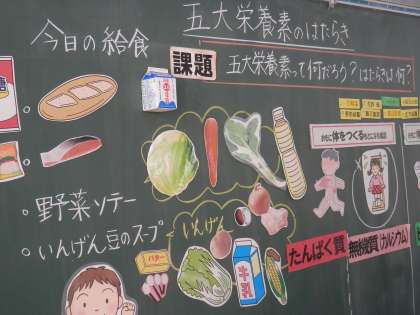 五大栄養素のはたらき
今日の給食
課題
五大栄養素って何だろう？はたらきは何？
おもに体をつくるもとになる食品
・野菜ソテー
いんげん
・いんげん豆のスープ
バター
牛乳
たんぱく質
無機質(カルシウム)